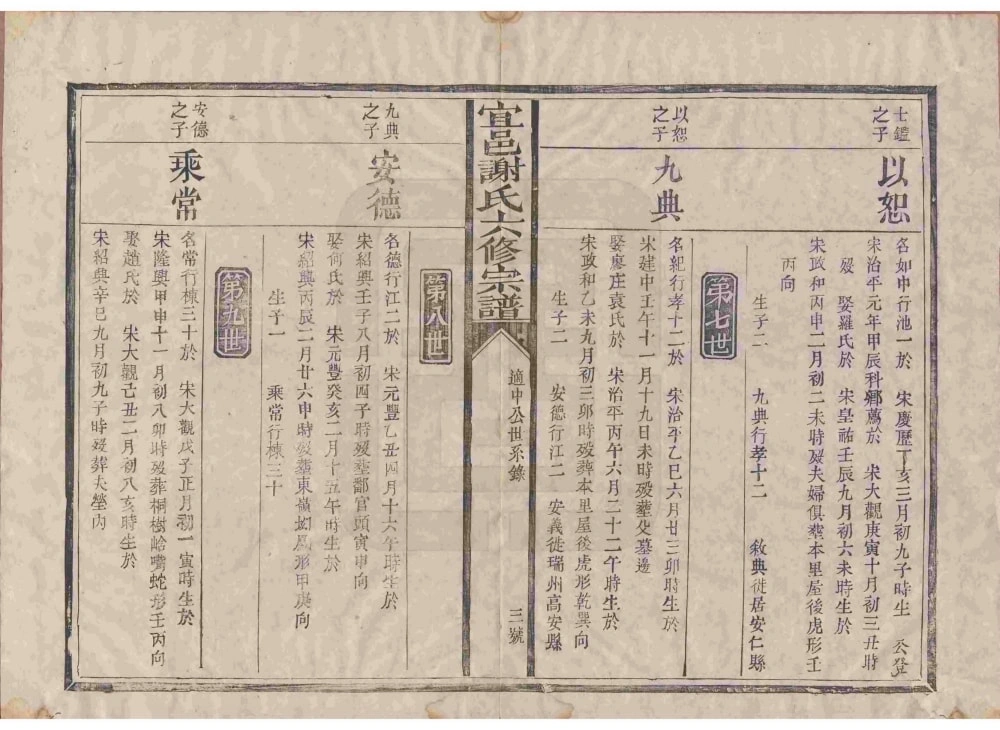 士鑑
之子
以恕
名如中行池一於　宋慶歷丁亥三月初九子時生　公登
宋治平元年甲辰科鄉薦於　宋大觀庚寅十月初三丑時
歿　娶羅氏於　宋皇祐壬辰九月初六未時生於
宋政和丙申二月初二未時歿夫婦俱塟本里屋後虎形壬
丙向
生子二　九典行孝十二　敘典徙居安仁縣
第七世
以恕
之子
九典
名紀行孝十二於　宋治平乙巳六月廿三卯時生於
宋建中壬午十一月十九日未時歿塟父墓邊
娶廖庄袁氏於　宋治平丙午六月二十二午時生於
宋政和乙未九月初三卯時歿葬本里屋後虎形乾巽向
生子二　安德行江二　安義徙瑞州高安縣
宜邑謝氏六修宗譜
適中公世系錄
三號
第八世
九典
之子
安德
名德行江二於　宋元豐乙丑四月十六午時生於
宋紹興壬子八月初四子時歿塟鄱官頭寅申向
娶何氏於　宋元豐癸亥二月十五午時生於
宋紹興丙辰二月廿六申時歿塟東嶺幼鳳形甲庚向
生子一　乘常行棟三十
第九世
安德
之子
乘常
名常行棟三十於　宋大觀戊子正月初一寅時生於
宋隆興甲申十一月初八卯時歿葬桐樹嶺嘴蛇形壬丙向
娶趙氏於　宋大觀己丑二月初八亥時生於
宋紹興辛巳九月初九子時歿葬夫塋內